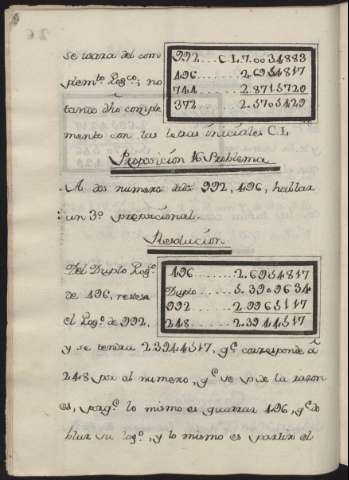 se usara del com
plem.to Log.co; no
tando dho comple
mento con las letras iniciales C.L
992 ... C.L.7.0034883
496 ....... 2.6954817
744 ....... 2.8715729
372 ....... 2.5705429
Proposicion 16 Problema
A dos numeros dados 992, 496, hallar
un 3.º proporcional.
Resolucion
Del Duplo Log.º
de 496, restese
el Log.º de 992,
496 ....... 2.6954817
Duplo ..... 5.3909634
992 ....... 2.9965117
248 ....... 2.3944517
y se tendra 2.3944517, q.e corresponde á
248 por al numero, q.e se pide la razon
es, porq.e lo mismo es quadrar 496, q.e do
blar su log.º, y lo mismo es partir el